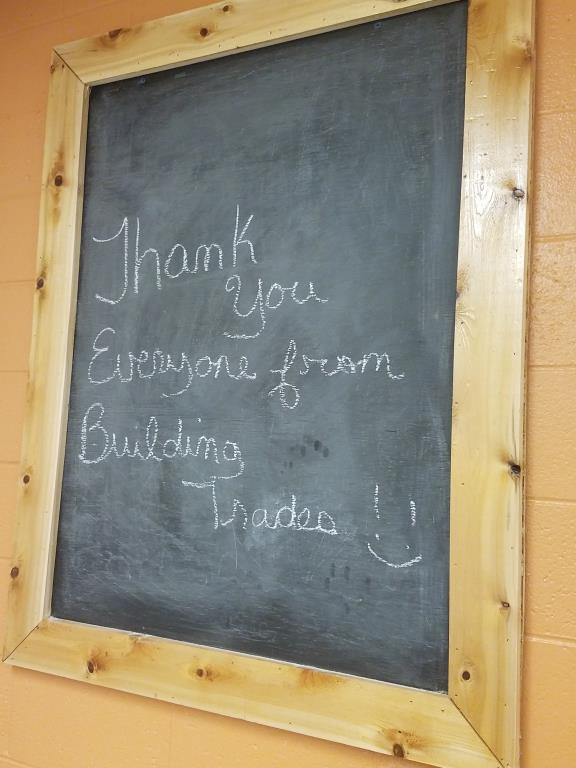 Thank
You
Everyone from
Building
Trades :)